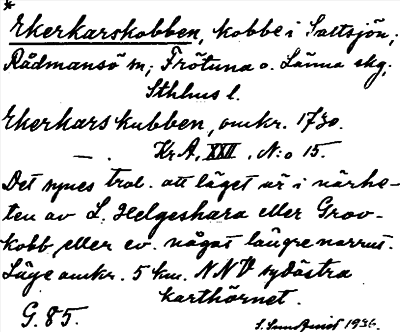 *
Ekerkarskobben, kobbe i Saltsjön;
Rådmansö sn; Frötuna o. Länna skg;
Sthlms l.
Ekerkars kubben, omkr. 1730.
— . Kr A, XXII, N:o 15.
Det synes trol. att läget är i närhe-
ten av L. Helgeshara eller Grov-
kobb eller ev. något längre norrut.
Läge omkr. 5 km. NNV sydöstra
karthörnet.
G. 85.
1936.